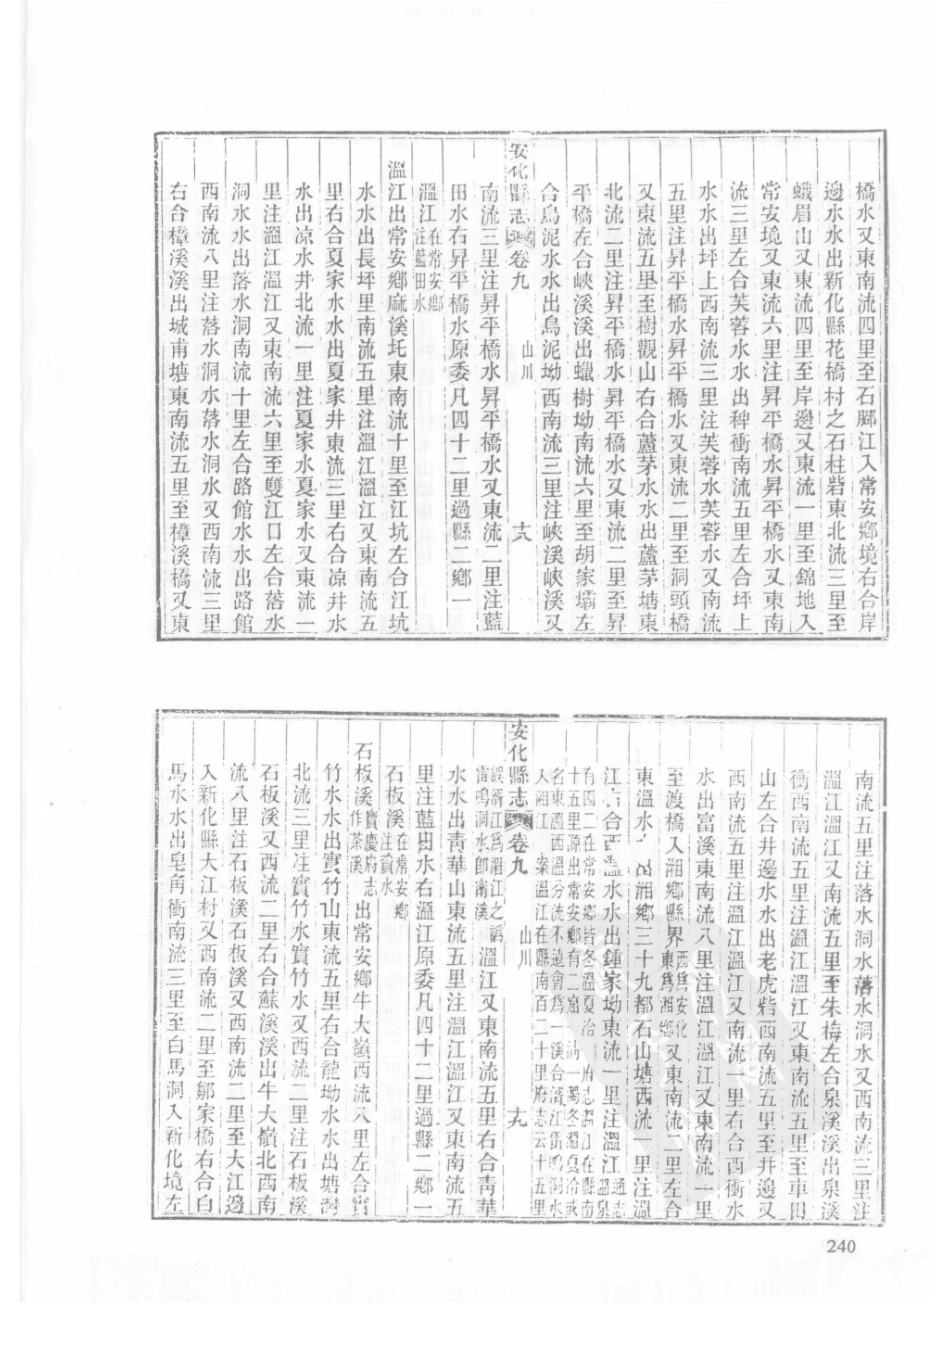 橋水又東南流四里至石腳江入常安鄉境右合岸
邊水水出新化縣花橋村之石柱砦東北流三里至
蛾眉山又東流四里至岸邊又東流一里至錦地入
常安境又東流六里注昇平橋水昇平橋水又東南
流三里左合芙蓉水水出稗衝南流五里左合坪上
水水出坪上西南流三里注芙蓉水芙蓉水又南流
五里注昇平橋水昇平橋水又東流二里至洞頭橋
又東流五里至樹觀山右合蘆茅水水出蘆茅塘東
北流二里注昇平橋水昇平橋水又東流二里至昇
平橋左合峽溪溪出蠟樹坳南流六里至胡家壩左
合烏泥水水出烏泥坳西南流三里注峽溪峽溪又
安化縣志 卷九 山川 十八
南流三里注昇平橋水昇平橋水又東流二里注藍
田水右昇平橋水原委凡四十二里過縣二鄉一
溫江在常安鄉
注藍田水
溫江出常安鄉麻溪坼東南流十里至江坑左合江坑
水水出長坪里南流五里注溫江溫江又東南流五
里右合夏家水水出夏家井東流三里右合凉井水
水出凉水井北流一里注夏家水夏家水又東流一
里注溫江溫江又東南流六里至雙江口左合落水
洞水水出落水洞南流十里左合路館水水出路館
西南流八里注落水洞水落水洞水又西南流三里
右合樟溪溪出城甫塘東南流五里至樟溪橋又東
南流五里注落水洞水落水洞水又西南流三里注
溫江溫江又南流五里至朱梅左合泉溪溪出泉溪
衝西南流五里注溫江溫江又東南流五里至車田
山左合井邊水水出老虎砦西南流五里至井邊又
西南流五里注溫江溫江又南流 里右合西衝水
水出富溪東南流八里注溫江溫江又東南流一里
至渡橋入湘鄉縣界西爲安化
東爲湘鄉又東南流二里左合
東溫水 出湘鄉三十九都石山塘西流一里注溫
江 右合西溫水水出鍾家坳東流一里注溫江通志
溫泉
有四二在常安鄉皆冬溫夏冷 府志 江在縣南
十五里源出常安鄉有二窟 一濁冬溫夏冷或
名東溫西溫分流不遠會爲一溪合 江
入湘江 案溫江在縣南百二十里府志云十五里
安化縣志 卷九 山川 十九
誤 江爲溫江之
雷鳴洞水卽甯溪 溫江又東南流五里右合靑華
水水出靑華山東流五里注溫江溫江又東南流五
里注藍田水右溫江原委凡四十二里過縣二鄉一
石板溪在常安鄉
注資水
石板溪寶慶府志
作茶溪出常安鄉牛大嶺西流入里左合實
竹水水出實竹山東流五里右合龍坳水水出塘灣
北流三里注實竹水實竹水又西流二里注石板溪
石板溪又西流二里右合蘇溪溪出牛大嶺北西南
流八里注石板溪石板溪又西南流二里至大江邊
入新化縣大江村又西南流二里至鄒家橋右合白
馬水水出皂角衝南流三里至白馬洞入新化境左
240